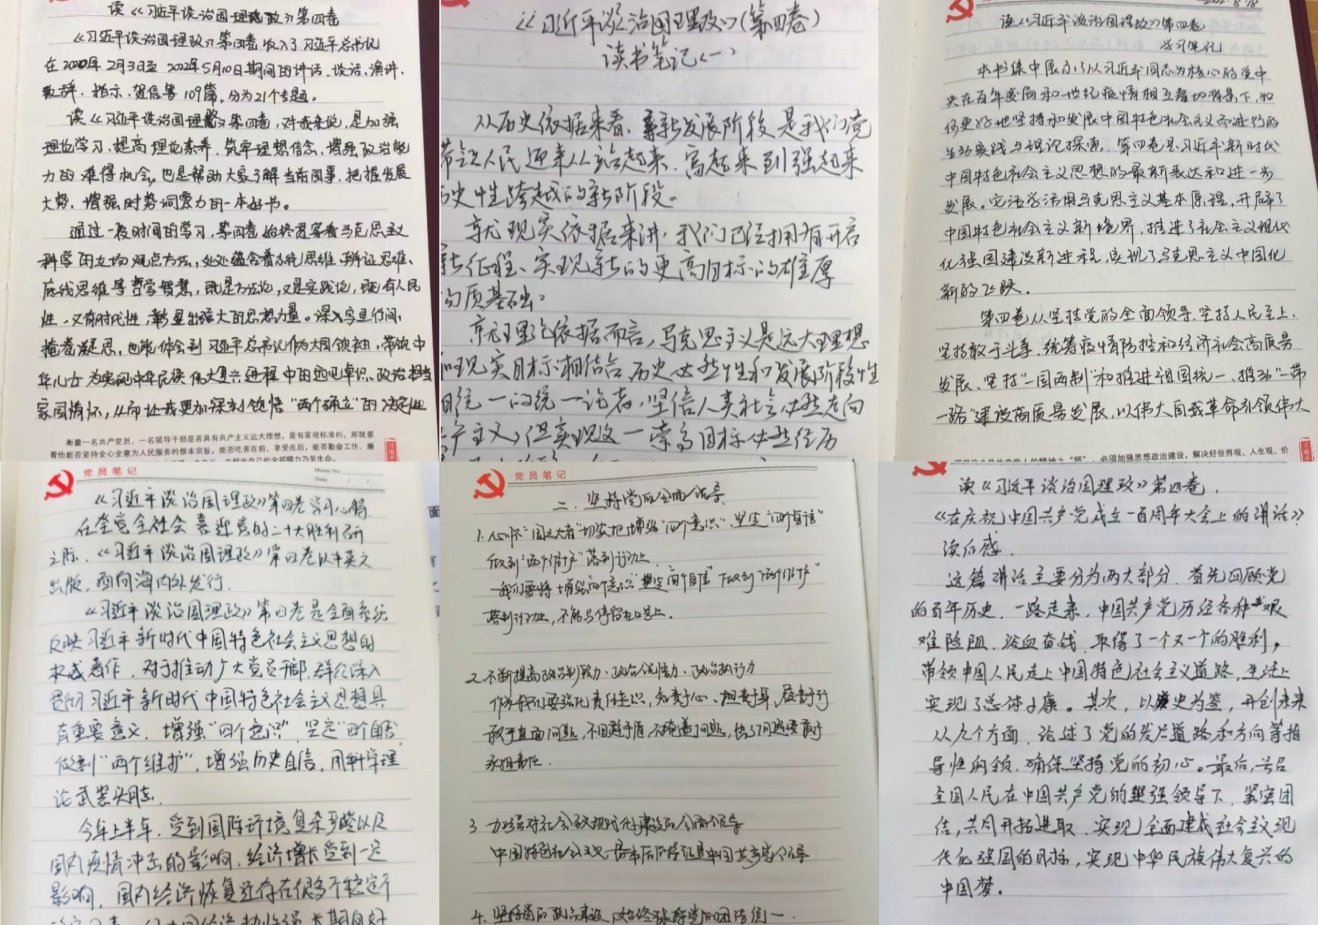 读《习近平谈治国理政》第四卷
《习近平谈治国理政》第四卷收入了习近平总书记
在2020年2月3日至2022年5月10日期间的讲话、谈话、演讲、
致辞、指示、贺信等109篇。分为21个专题。
读《习近平谈治国理政》第四卷,对我来说,是加强
理论学习、提高理论素养、筑牢理想信念、增强政治能
力的难得机会。也是帮助大家了解当前国事、把握发展
大势、增强时势洞察力的一本好书。
通过一段时间的学习,第四卷始终贯穿着马克思主义
科学的立场观点方法,处处蕴含着系统思维、辩证思维、
底线思维等哲学智慧,既是方法论,又是实践论,既有人民
性,又有时代性,彰显出强大的思想力量。深入字里行间,
掩卷凝思,也能体会到习近平总书记作为大国领袖,带领中
华儿女为实现中华民族伟大复兴进程中的远见卓识、政治担当
家国情怀,从而让我更加深刻领悟“两个确立”的决定性
衡量一名共产党员、一名领导干部是否具有共产主义远大理想,是有客观标准的,那就要
看他能否坚持全心全意为人民服务的根本宗旨,能否吃苦在前、享受在后,能否勤奋工作、廉
《习近平谈治国理政》(第四卷)
读书笔记(一)
从历史依据来看,新发展阶段是我们党
带领人民迎来从站起来、富起来到强起来
历史性跨越的新阶段。
就现实依据来讲,我们已经拥有开启
新征程、实现新的更高目标的雄厚
物质基础。
就理论依据而言,马克思主义是远大理想
和现实目标相结合、历史必然性和发展阶段性
相统一的统一论者,坚信人类社会必然走向
共产主义,但实现这一崇高目标必然经历
读《习近平谈治国理政》第四卷
学习笔记
本书集中展示了以习近平同志为核心的党中
央在百年变局和世纪疫情相互叠加背景下,如
何更好地坚持和发展中国特色社会主义而进行的
生动实践与理论探索。第四卷是习近平新时代
中国特色社会主义思想的最新表达和进一步
发展。它活学活用马克思主义基本原理,开辟了
中国特色社会主义新境界,推进了社会主义现代
化强国建设新进程,实现了马克思主义中国化
新的飞跃。
第四卷从坚持党的全面领导、坚持人民至上、
坚持敢于斗争、统筹疫情防控和经济社会高质量
发展、坚持“一国两制”和推进祖国统一、推动“一带
一路”建设高质量发展,以伟大自我革命引领伟大
必须加强思想政治建设,解决好世界观、人生观、价
党员笔记
Date
《习近平谈治国理政》第四卷学习心得
在全党全社会喜迎党的二十大胜利召开
之际,《习近平谈治国理政》第四卷以中英文
出版,面向海内外发行。
《习近平谈治国理政》第四卷是全面系统
反映习近平新时代中国特色社会主义思想的
权威著作,对于推动广大党员干部、群众深入
学习习近平新时代中国特色社会主义思想具
有重要意义,增强“四个意识”、坚定“四个自信”
做到“两个维护”,增强历史自信,用科学理
论武装头脑。
今年上半年,受到国际环境复杂多变以及
国内疫情冲击的影响,经济增长受到一定
影响,国内经济恢复还存在很多不稳定不
党员笔记
二、坚持党的全面领导
1.心怀“国之大者”切实把增强“四个意识”、坚定“四个自信”
做到“两个维护”落到行动上
我们要将增强“四个意识”坚定“四个自信”做到“两个维护”
落到行动上,不能只停留在口号上。
2.不断提高政治判断力、政治领悟力、政治执行力
作为我们要强化责任意识,知责于心、担责于身、履责于行
敢于直面问题,不回避矛盾、不掩盖问题,出了问题要敢于
承担责任。
3.加强对社会主义现代化建设的全面领导
中国特色社会主义最本质的特征是中国共产党领导
4.坚持党的政治建设,始终保持党的团结统一
读《习近平谈治国理政》第四卷.
《在庆祝中国共产党成立一百周年大会上的讲话》
读后感.
这篇讲话主要分为两大部分.首先回顾党
的百年历史.一路走来,中国共产党历经各种艰
难险阻,浴血奋战,取得了一个又一个的胜利。
带领中国人民走上中国特色社会主义道路,生活上
实现了总体小康。其次,以史为鉴,开创未来
从九个方面,论述了党的发展道路和方向等指
导性纲领,确保坚持党的初心。最后,号召
全国人民在中国共产党的坚强领导下,紧密团
结,共同开拓进取,实现全面建成社会主义现
代化强国的目标,实现中华民族伟大复兴的
中国梦。